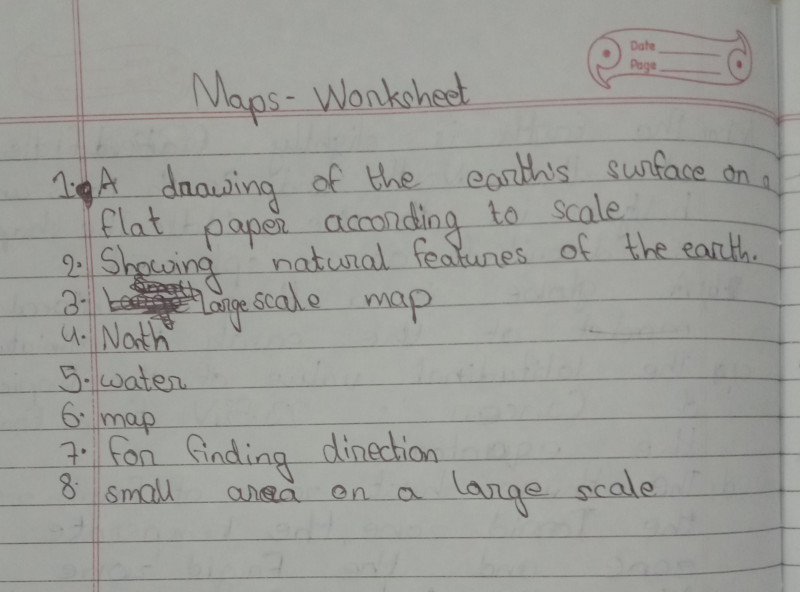 Date
Page
Maps - Worksheet
1. A drawing of the earth's surface on a
flat paper according to scale
2. Showing natural features of the earth.
3. large scale map
4. North
5. water
6. map
7. for finding direction
8. small area on a large scale